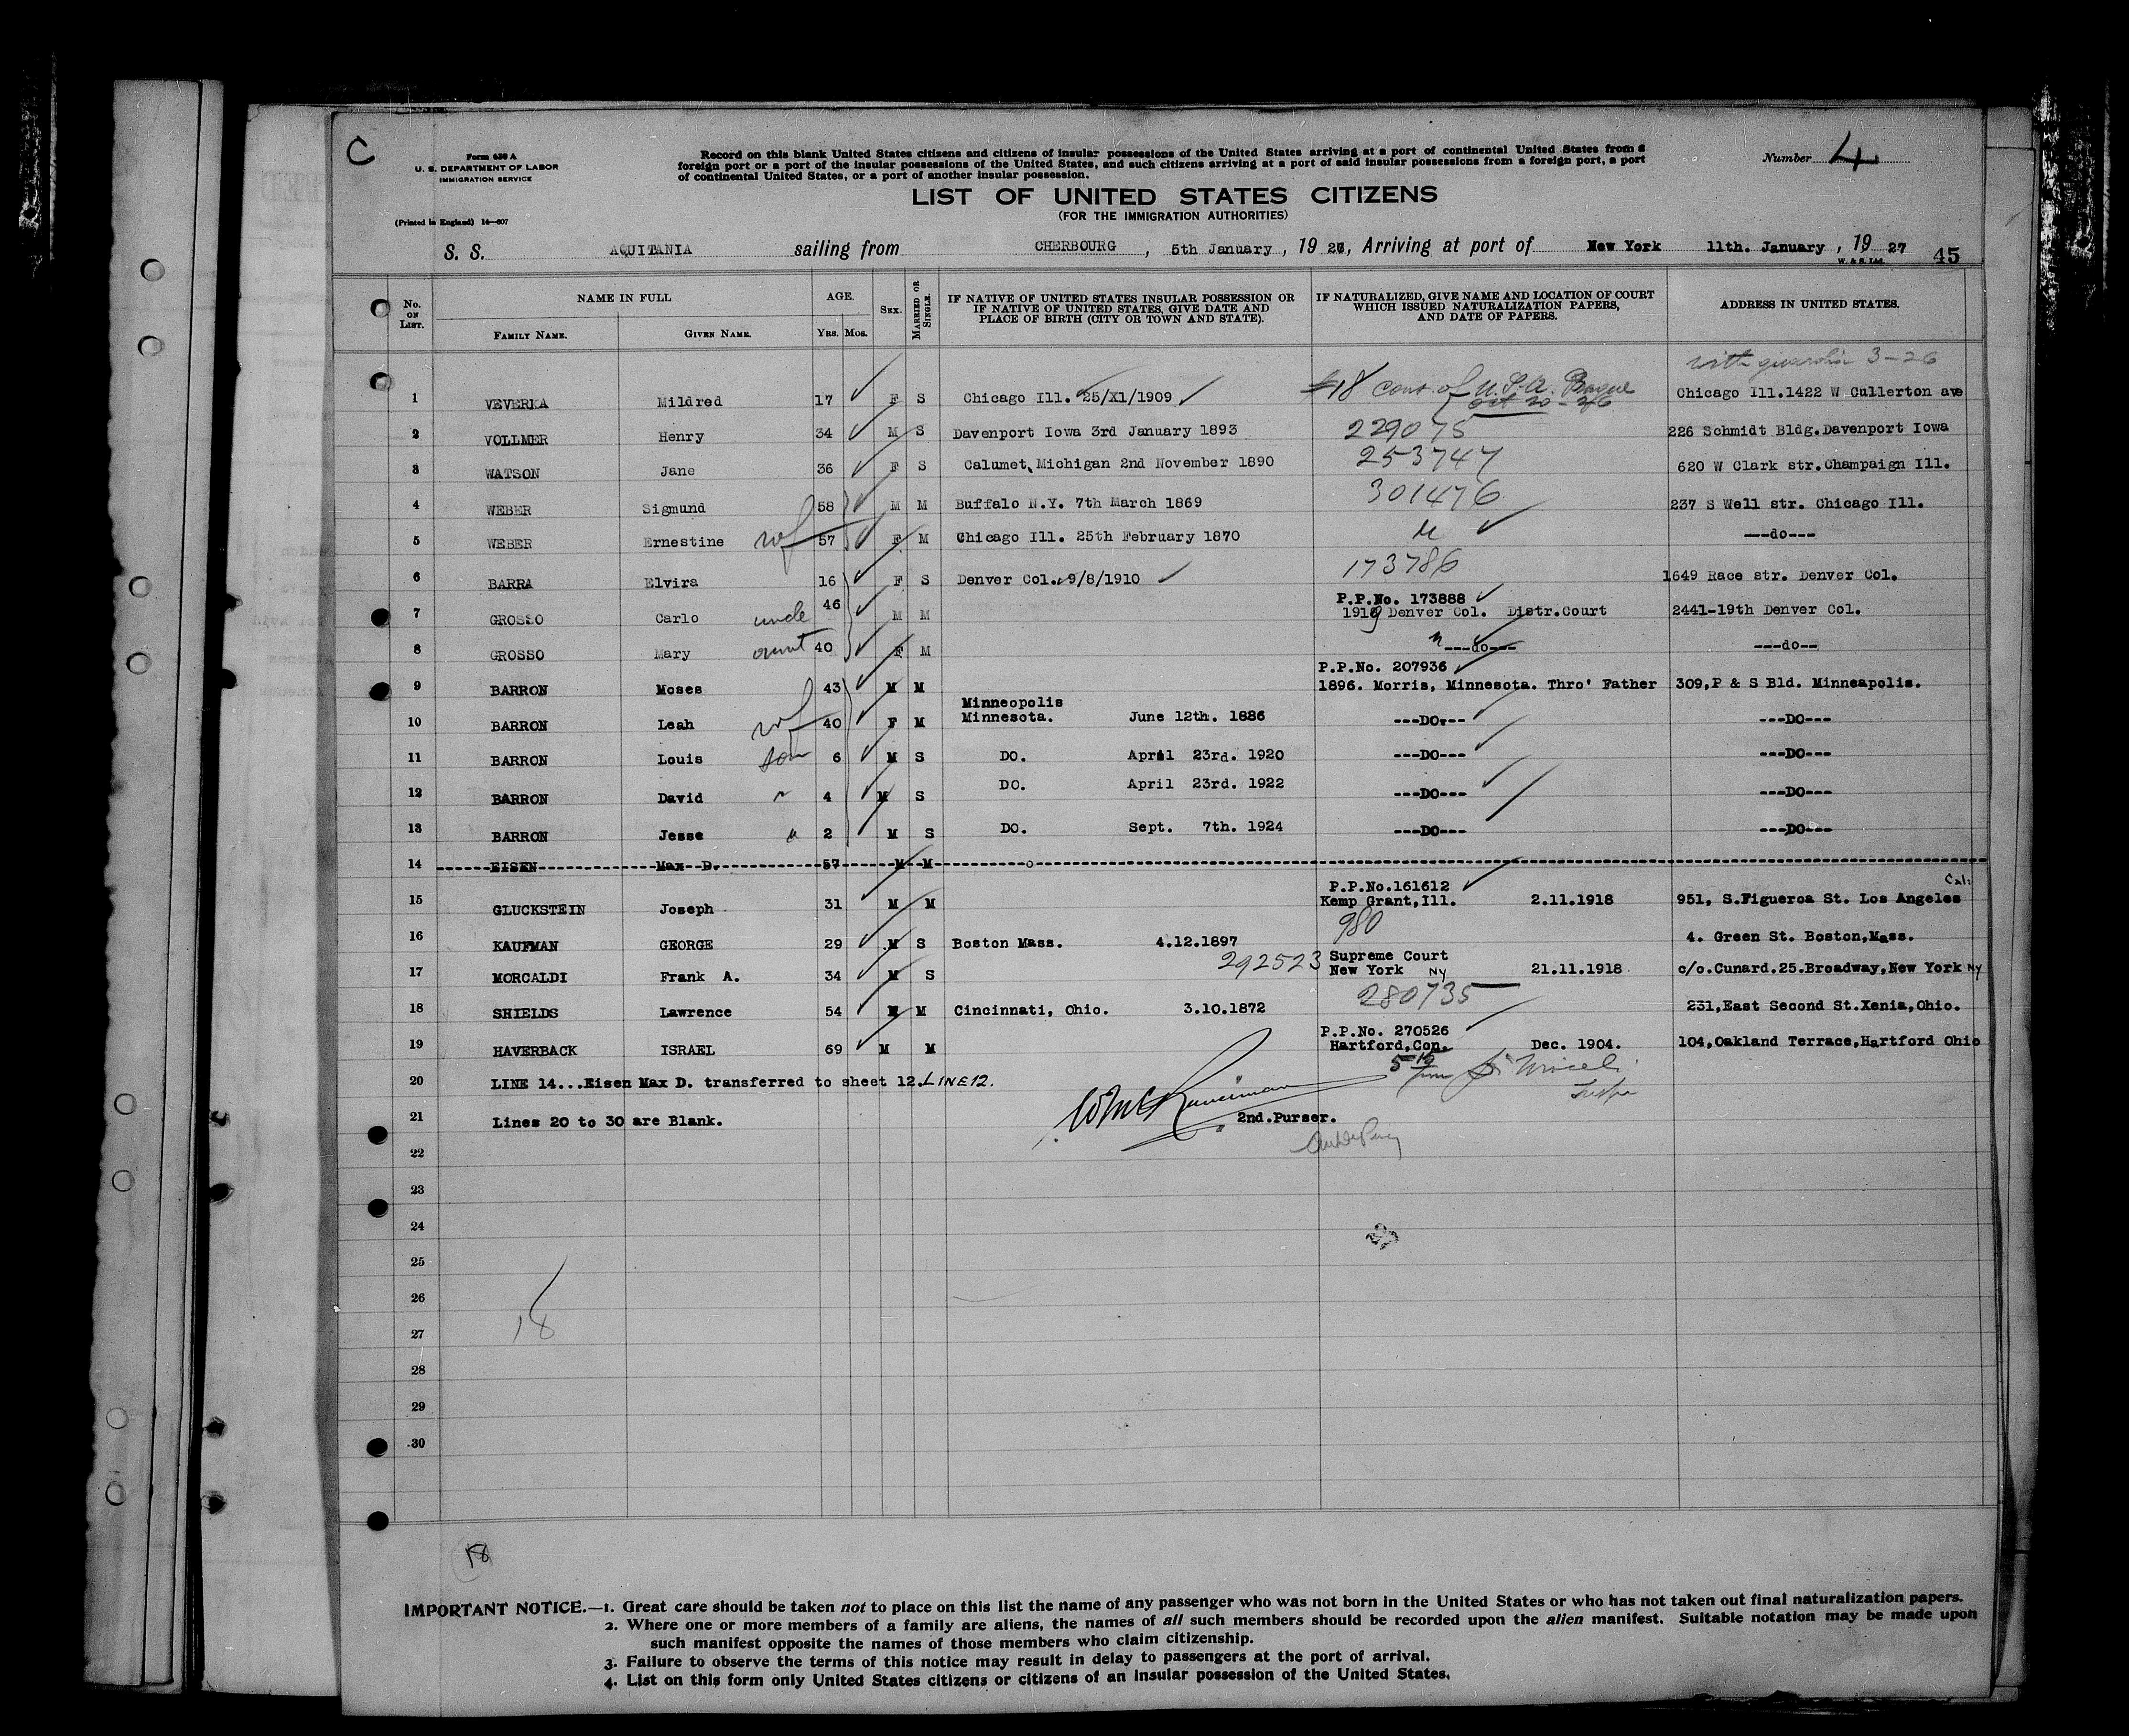 C
Form 630 A
U. S. DEPARTMENT OF LABOR
IMMIGRATION SERVICE
(Printed in England) 14—607
Record on this blank United States citizens and citizens of insular possessions of the United States arriving at a port of continental United States from a
foreign port or a port of the insular possessions of the United States, and such citizens arriving at a port of said insular possessions from a foreign port, a port
of continental United States, or a port of another insular possession.
Number 4
LIST OF UNITED STATES CITIZENS
(FOR THE IMMIGRATION AUTHORITIES)
S. S. AQUITANIA sailing from CHERBOURG , 5th January , 19 27, Arriving at port of New York 11th. January , 19 27
W. & S. Ltd. 45
No. ON LIST. NAME IN FULL FAMILY NAME. GIVEN NAME. AGE. YRS. MOS. SEX. MARRIED OR SINGLE. IF NATIVE OF UNITED STATES INSULAR POSSESSION OR IF NATIVE OF UNITED STATES, GIVE DATE AND PLACE OF BIRTH (CITY OR TOWN AND STATE). IF NATURALIZED, GIVE NAME AND LOCATION OF COURT WHICH ISSUED NATURALIZATION PAPERS, AND DATE OF PAPERS. ADDRESS IN UNITED STATES.
with 3-26
1 VEVERKA Mildred 17 F S Chicago Ill. 25/X1/1909 #18 cons of U.S.A. Prague Oct 20-26 Chicago Ill.1422 W Cullerton ave
2 VOLLMER Henry 34 M S Davenport Iowa 3rd January 1893 229075 226 Schmidt Bldg.Davenport Iowa
3 WATSON Jane 36 F S Calumet, Michigan 2nd November 1890 253747 620 W Clark str.Champaign Ill.
4 WEBER Sigmund 58 M M Buffalo N.Y. 7th March 1869 301476 237 S Well str. Chicago Ill.
5 WEBER Ernestine wf 57 F M Chicago Ill. 25th February 1870 " ---do---
6 BARRA Elvira 16 F S Denver Col. 9/8/1910 173786 1649 Race str. Denver Col.
7 GROSSO Carlo uncle 46 M M P.P.No. 173888 1919 Denver Col. Distr.Court 2441-19th Denver Col.
8 GROSSO Mary aunt 40 F M " ---do--- ---do--
9 BARRON Moses 43 M M P.P.No. 207936 1896. Morris, Minnesota. Thro' Father 309,P & S Bld. Minneapolis.
10 BARRON Leah wf 40 F M Minneopolis Minnesota. June 12th. 1886 ---DO.-- ---DO---
11 BARRON Louis son 6 M S DO. April 23rd. 1920 ---DO--- ---DO---
12 BARRON David " 4 M S DO. April 23rd. 1922 ---DO--- ---DO---
13 BARRON Jesse " 2 M S DO. Sept. 7th. 1924 ---DO--- ---DO---
14 EISEN Max D. 57 M M
15 GLUCKSTEIN Joseph 31 M M P.P.No.161612 Kemp Grant,Ill. 2.11.1918 951, S.Figueroa St. Los Angeles Cal:
16 KAUFMAN GEORGE 29 M S Boston Mass. 4.12.1897 980 4. Green St. Boston,Mass.
17 MORCALDI Frank A. 34 M S 292523 Supreme Court New York NY 21.11.1918. c/o.Cunard.25.Broadway,New York NY
18 SHIELDS Lawrence 54 M M Cincinnati, Ohio. 3.10.1872 280735 231,East Second St.Xenia,Ohio.
19 HAVERBACK ISRAEL 69 M M P.P.No. 270526 Hartford,Con. Dec. 1904. 104,Oakland Terrace,Hartford Ohio
20 LINE 14...Eisen Max D. transferred to sheet 12.LINE12.
21 Lines 20 to 30 are Blank. 2nd.Purser.
22
23
24
25
26
27
28
29
30
18
18
IMPORTANT NOTICE.—1. Great care should be taken not to place on this list the name of any passenger who was not born in the United States or who has not taken out final naturalization papers.
2. Where one or more members of a family are aliens, the names of all such members should be recorded upon the alien manifest. Suitable notation may be made upon
such manifest opposite the names of those members who claim citizenship.
3. Failure to observe the terms of this notice may result in delay to passengers at the port of arrival.
4. List on this form only United States citizens or citizens of an insular possession of the United States.